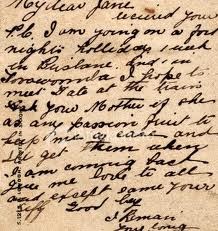 My dear Jane
received your
P.C. I am going on a fort
nights holladay 1 week
in Brisbane and 1 in
Toowoomba I hope to
meet at the train
Ask your Mother if she
has any passion fruit to
keep me a case and
I get them when
I am coming back
give me love to all
and except same your
self Good by